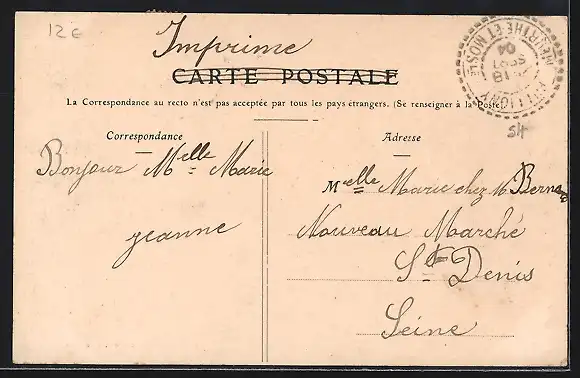 12€
Imprime
CARTE POSTALE
La Correspondance au recto n'est pas acceptée par tous les pays étrangers. (Se renseigner à la Poste).
54
Correspondance
Adresse
Bonjour Melle Marie
jeanne
Melle Marie chez M
Nouveau Marché
St Denis
Seine
MEURTHE ET MOSLLE
18
SEPT
04